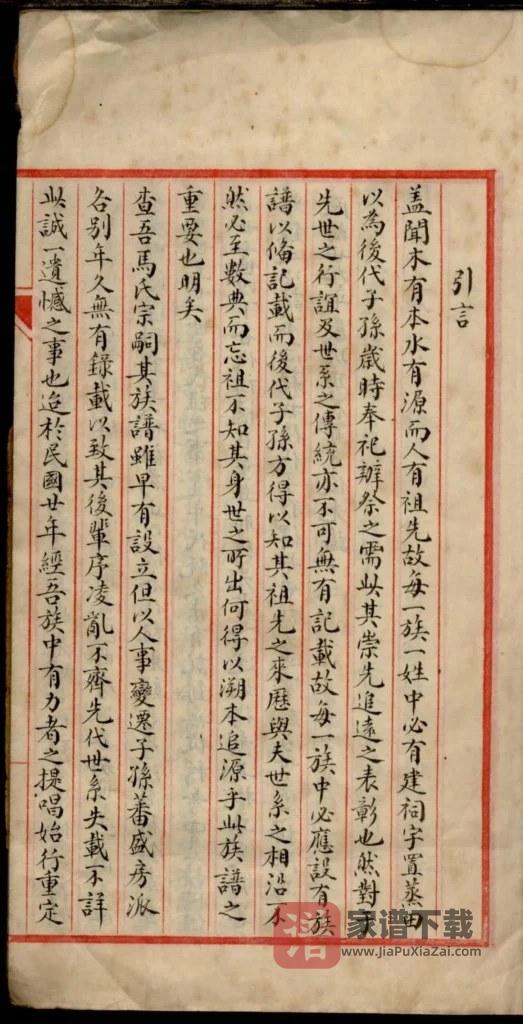 引言
蓋聞木有本水有源而人有祖先故每一族一姓中必有建祠宇置蒸田
以為後代子孫歲時奉祀辦祭之需此其崇先追遠之表彰也然對于
先世之行誼及世系之傳統亦不可無有記載故每一族中必應設有族
譜以偹記載而後代子孫方得以知其祖先之來歷與夫世系之相沿不
然必至數典而忘祖不知其身世之所出何得以溯本追源乎此族譜之
重要也明矣
查吾馬氏宗嗣其族譜雖早有設立但以人事變遷子孫蕃盛房派
各別年久無有錄載以致其後輩序凌亂不齊先代世系失載不詳
此誠一遺憾之事也迨於民國廿年經吾族中有力者之提唱始行重定
譜 家谱下载
www.JiaPuXiaZai.com